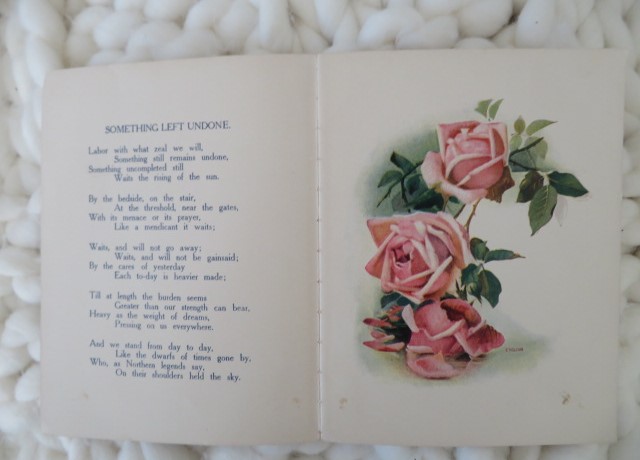 SOMETHING LEFT UNDONE.
Labor with what zeal we will,
Something still remains undone,
Something uncompleted still
Waits the rising of the sun.
By the bedside, on the stair,
At the threshold, near the gates,
With its menace or its prayer,
Like a mendicant it waits;
Waits, and will not go away;
Waits, and will not be gainsaid;
By the cares of yesterday
Each to-day is heavier made;
Till at length the burden seems
Greater than our strength can bear,
Heavy as the weight of dreams,
Pressing on us everywhere.
And we stand from day to day,
Like the dwarfs of times gone by,
Who, as Northern legends say,
On their shoulders held the sky.